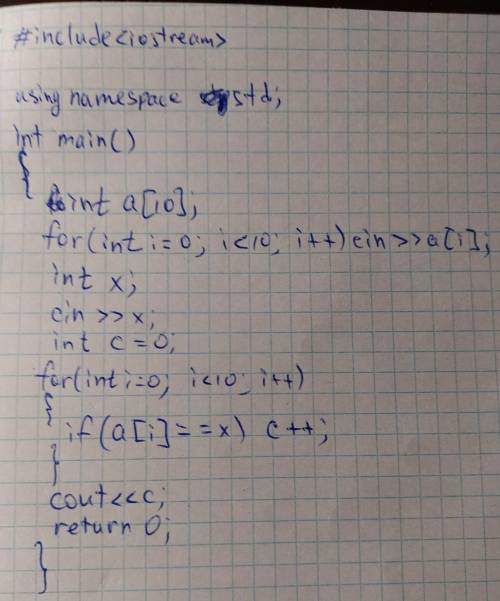 #include<iostream>
using namespace std;
int main()
{
int a[10];
for(int i=0; i<10; i++)cin>>a[i];
int x;
cin >>x;
int c=0;
for(int i=0; i<10; i++)
{
if(a[i]==x) c++;
}
cout<<c;
return 0;
}